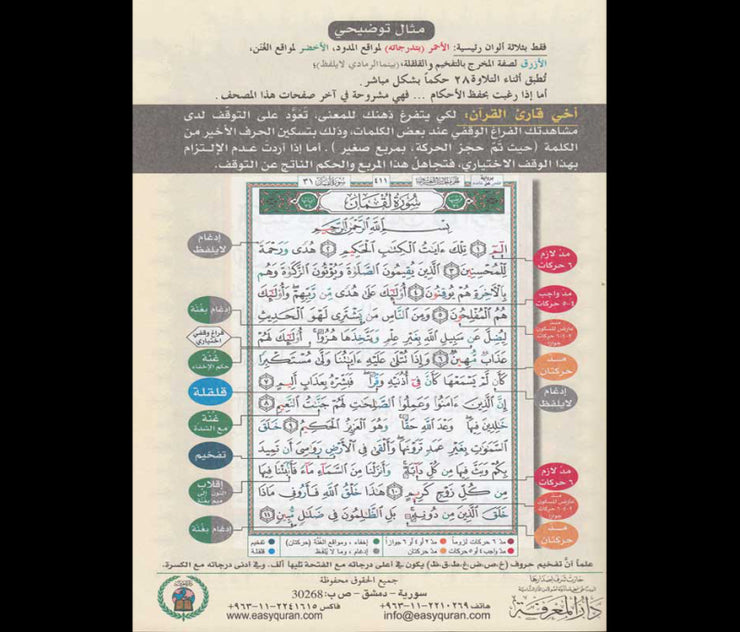 مثال توضيحي
فقط بثلاثة ألوان رئيسية: الأحمر (بتدرجاته) لمواقع المدود، الأخضر لمواقع الغُنَن،
الأزرق لصفة المخرج بالتفخيم والقلقلة، (بينما الرمادي لا يُلفظ)؛
تُطبق أثناء التلاوة ٢٨ حكماً بشكل مباشر.
أما إذا رغبت بحفظ الأحكام ... فهي مشروحة في آخر صفحات هذا المصحف.
أخي قارئ القرآن، لكي يتفرغ ذهنك للمعنى، تَعوَّد على التوقف لدى
مشاهدتك الفراغ الوقفي عند بعض الكلمات، وذلك بتسكين الحرف الأخير من
الكلمة (حيث تمّ حجز الحركة، بمربع صغير). أما إذا أردت عدم الإلتزام
بهذا الوقف الاختياري، فتجاهل هذا المربع والحكم الناتج عن التوقف.
سورة لقمان ٣١
٤١١
سُورَةُ لُقْمَان
بِسْمِ اللَّهِ الرَّحْمَٰنِ الرَّحِيمِ
الٓمٓ ١ تِلْكَ ءَايَٰتُ الْكِتَٰبِ الْحَكِيمِ ٢ هُدًى وَرَحْمَةً
لِّلْمُحْسِنِينَ ٣ الَّذِينَ يُقِيمُونَ الصَّلَوٰةَ وَيُؤْتُونَ الزَّكَوٰةَ وَهُم
بِالْءَاخِرَةِ هُمْ يُوقِنُونَ ٤ أُوْلَٰٓئِكَ عَلَىٰ هُدًى مِّن رَّبِّهِمْ وَأُوْلَٰٓئِكَ
هُمُ الْمُفْلِحُونَ ٥ وَمِنَ النَّاسِ مَن يَشْتَرِي لَهْوَ الْحَدِيثِ
لِيُضِلَّ عَن سَبِيلِ اللَّهِ بِغَيْرِ عِلْمٍ وَيَتَّخِذَهَا هُزُوًا أُوْلَٰٓئِكَ لَهُمْ
عَذَابٌ مُّهِينٌ ٦ وَإِذَا تُتْلَىٰ عَلَيْهِ ءَايَٰتُنَا وَلَّىٰ مُسْتَكْبِرًا
كَأَن لَّمْ يَسْمَعْهَا كَأَنَّ فِي أُذُنَيْهِ وَقْرًا فَبَشِّرْهُ بِعَذَابٍ أَلِيمٍ ٧
إِنَّ الَّذِينَ ءَامَنُوا وَعَمِلُوا الصَّٰلِحَٰتِ لَهُمْ جَنَّٰتُ النَّعِيمِ ٨
خَٰلِدِينَ فِيهَا وَعْدَ اللَّهِ حَقًّا وَهُوَ الْعَزِيزُ الْحَكِيمُ ٩ خَلَقَ
السَّمَٰوَٰتِ بِغَيْرِ عَمَدٍ تَرَوْنَهَا وَأَلْقَىٰ فِي الْأَرْضِ رَوَٰسِيَ أَن تَمِيدَ
بِكُمْ وَبَثَّ فِيهَا مِن كُلِّ دَآبَّةٍ وَأَنزَلْنَا مِنَ السَّمَآءِ مَآءً فَأَنۢبَتْنَا فِيهَا
مِن كُلِّ زَوْجٍ كَرِيمٍ ١٠ هَٰذَا خَلْقُ اللَّهِ فَأَرُونِي مَاذَا
خَلَقَ الَّذِينَ مِن دُونِهِ بَلِ الظَّٰلِمُونَ فِي ضَلَٰلٍ مُّبِينٍ ١١
مدّ لازم
٦ حركات
مدّ واجب
٤-٥ حركات
مدّ
عارض للسكون
جوازاً
مدّ
حركتان
إدغام
لا يلفظ
مدّ لازم
٦ حركات
مدّ
عارض للسكون
جوازاً
مدّ
حركتان
إدغام
لا يلفظ
إدغام بغنّة
فراغ وقفي
اختياري
غُنّة
حكم الإخفاء
قلقلة
غُنّة
مع الشدة
تفخيم
إقلاب
النون إلى
ميم بغنة
إدغام بغنّة
مدّ ٦ حركات لزوماً
مدّ ٢ أو ٤ أو ٦ جوازاً
إخفاء، ومواقع الغُنَّة (حركتان)
تفخيم
مدّ واجب ٤ أو ٥ حركات
مدّ حركتان
إدغام، وما لا يُلفظ
قلقلة
علماً أنَّ تفخيم حروف (خ،ص،ض،غ،ط،ق،ظ) يكون في أعلى درجاته مع الفتحة تليها ألف.. وفي أدنى درجاته مع الكسرة.
جميع الحقوق محفوظة
سورية - دمشق - ص.ب: 30268
هاتف ٢٢١٠٢٦٩-١١-٩٦٣+
فاكس ٢٢٤١٦١٥-١١-٩٦٣+
info@easyquran.com
www.easyquran.com
دار المعرفة